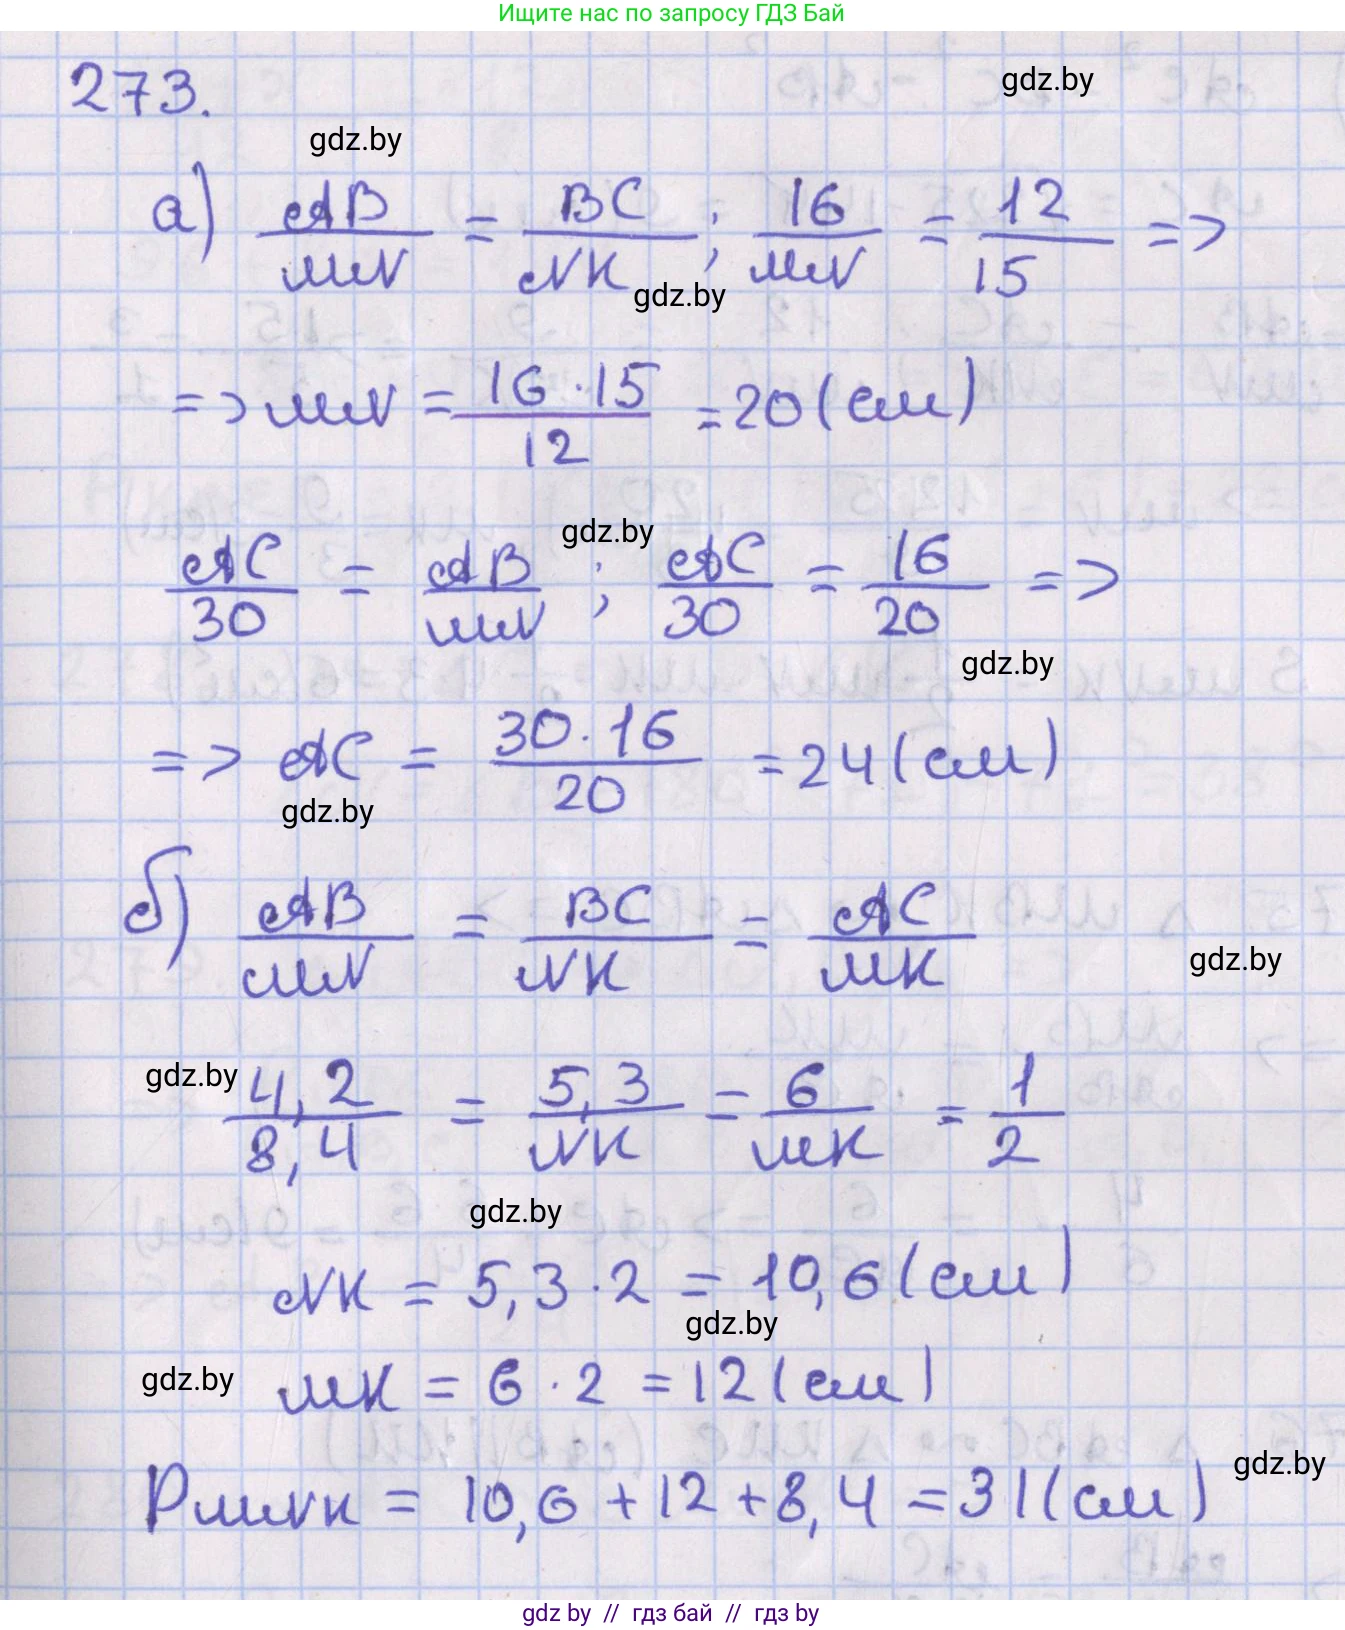 Ищите нас по запросу ГДЗ Бай
273.
gdz.by
gdz.by
а) AB/MN = BC/NK ; 16/MN = 12/15 =>
gdz.by
=> MN = 16·15/12 = 20 (см)
gdz.by
AC/30 = AB/MN ; AC/30 = 16/20 =>
gdz.by
=> AC = 30·16/20 = 24 (см)
gdz.by
б) AB/MN = BC/NK = AC/MK
gdz.by
gdz.by
4,2/8,4 = 5,3/NK = 6/MK = 1/2
gdz.by
NK = 5,3 · 2 = 10,6 (см)
gdz.by
gdz.by
MK = 6 · 2 = 12 (см)
gdz.by
PMNK = 10,6 + 12 + 8,4 = 31 (см)
gdz by // гдз бай // гдз by